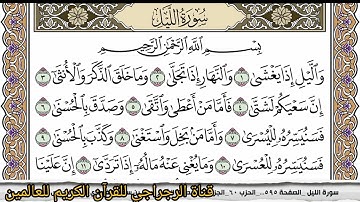 سُورَةُ اللَّيْلِ
بِسْمِ اللَّهِ الرَّحْمَٰنِ الرَّحِيمِ
وَاللَّيْلِ إِذَا يَغْشَىٰ ١ وَالنَّهَارِ إِذَا تَجَلَّىٰ ٢ وَمَا خَلَقَ الذَّكَرَ وَالْأُنثَىٰ ٣
إِنَّ سَعْيَكُمْ لَشَتَّىٰ ٤ فَأَمَّا مَنْ أَعْطَىٰ وَاتَّقَىٰ ٥ وَصَدَّقَ بِالْحُسْنَىٰ ٦
فَسَنُيَسِّرُهُ لِلْيُسْرَىٰ ٧ وَأَمَّا مَنْ بَخِلَ وَاسْتَغْنَىٰ ٨ وَكَذَّبَ بِالْحُسْنَىٰ ٩
فَسَنُيَسِّرُهُ لِلْعُسْرَىٰ ١٠ وَمَا يُغْنِي عَنْهُ مَالُهُ إِذَا تَرَدَّىٰ ١١ إِنَّ عَلَيْنَا
سورة الليل . الصفحة ٥٩٥ .. الحزب ٦٠
قناة الرجراجي للقرآن الكريم للعالمين